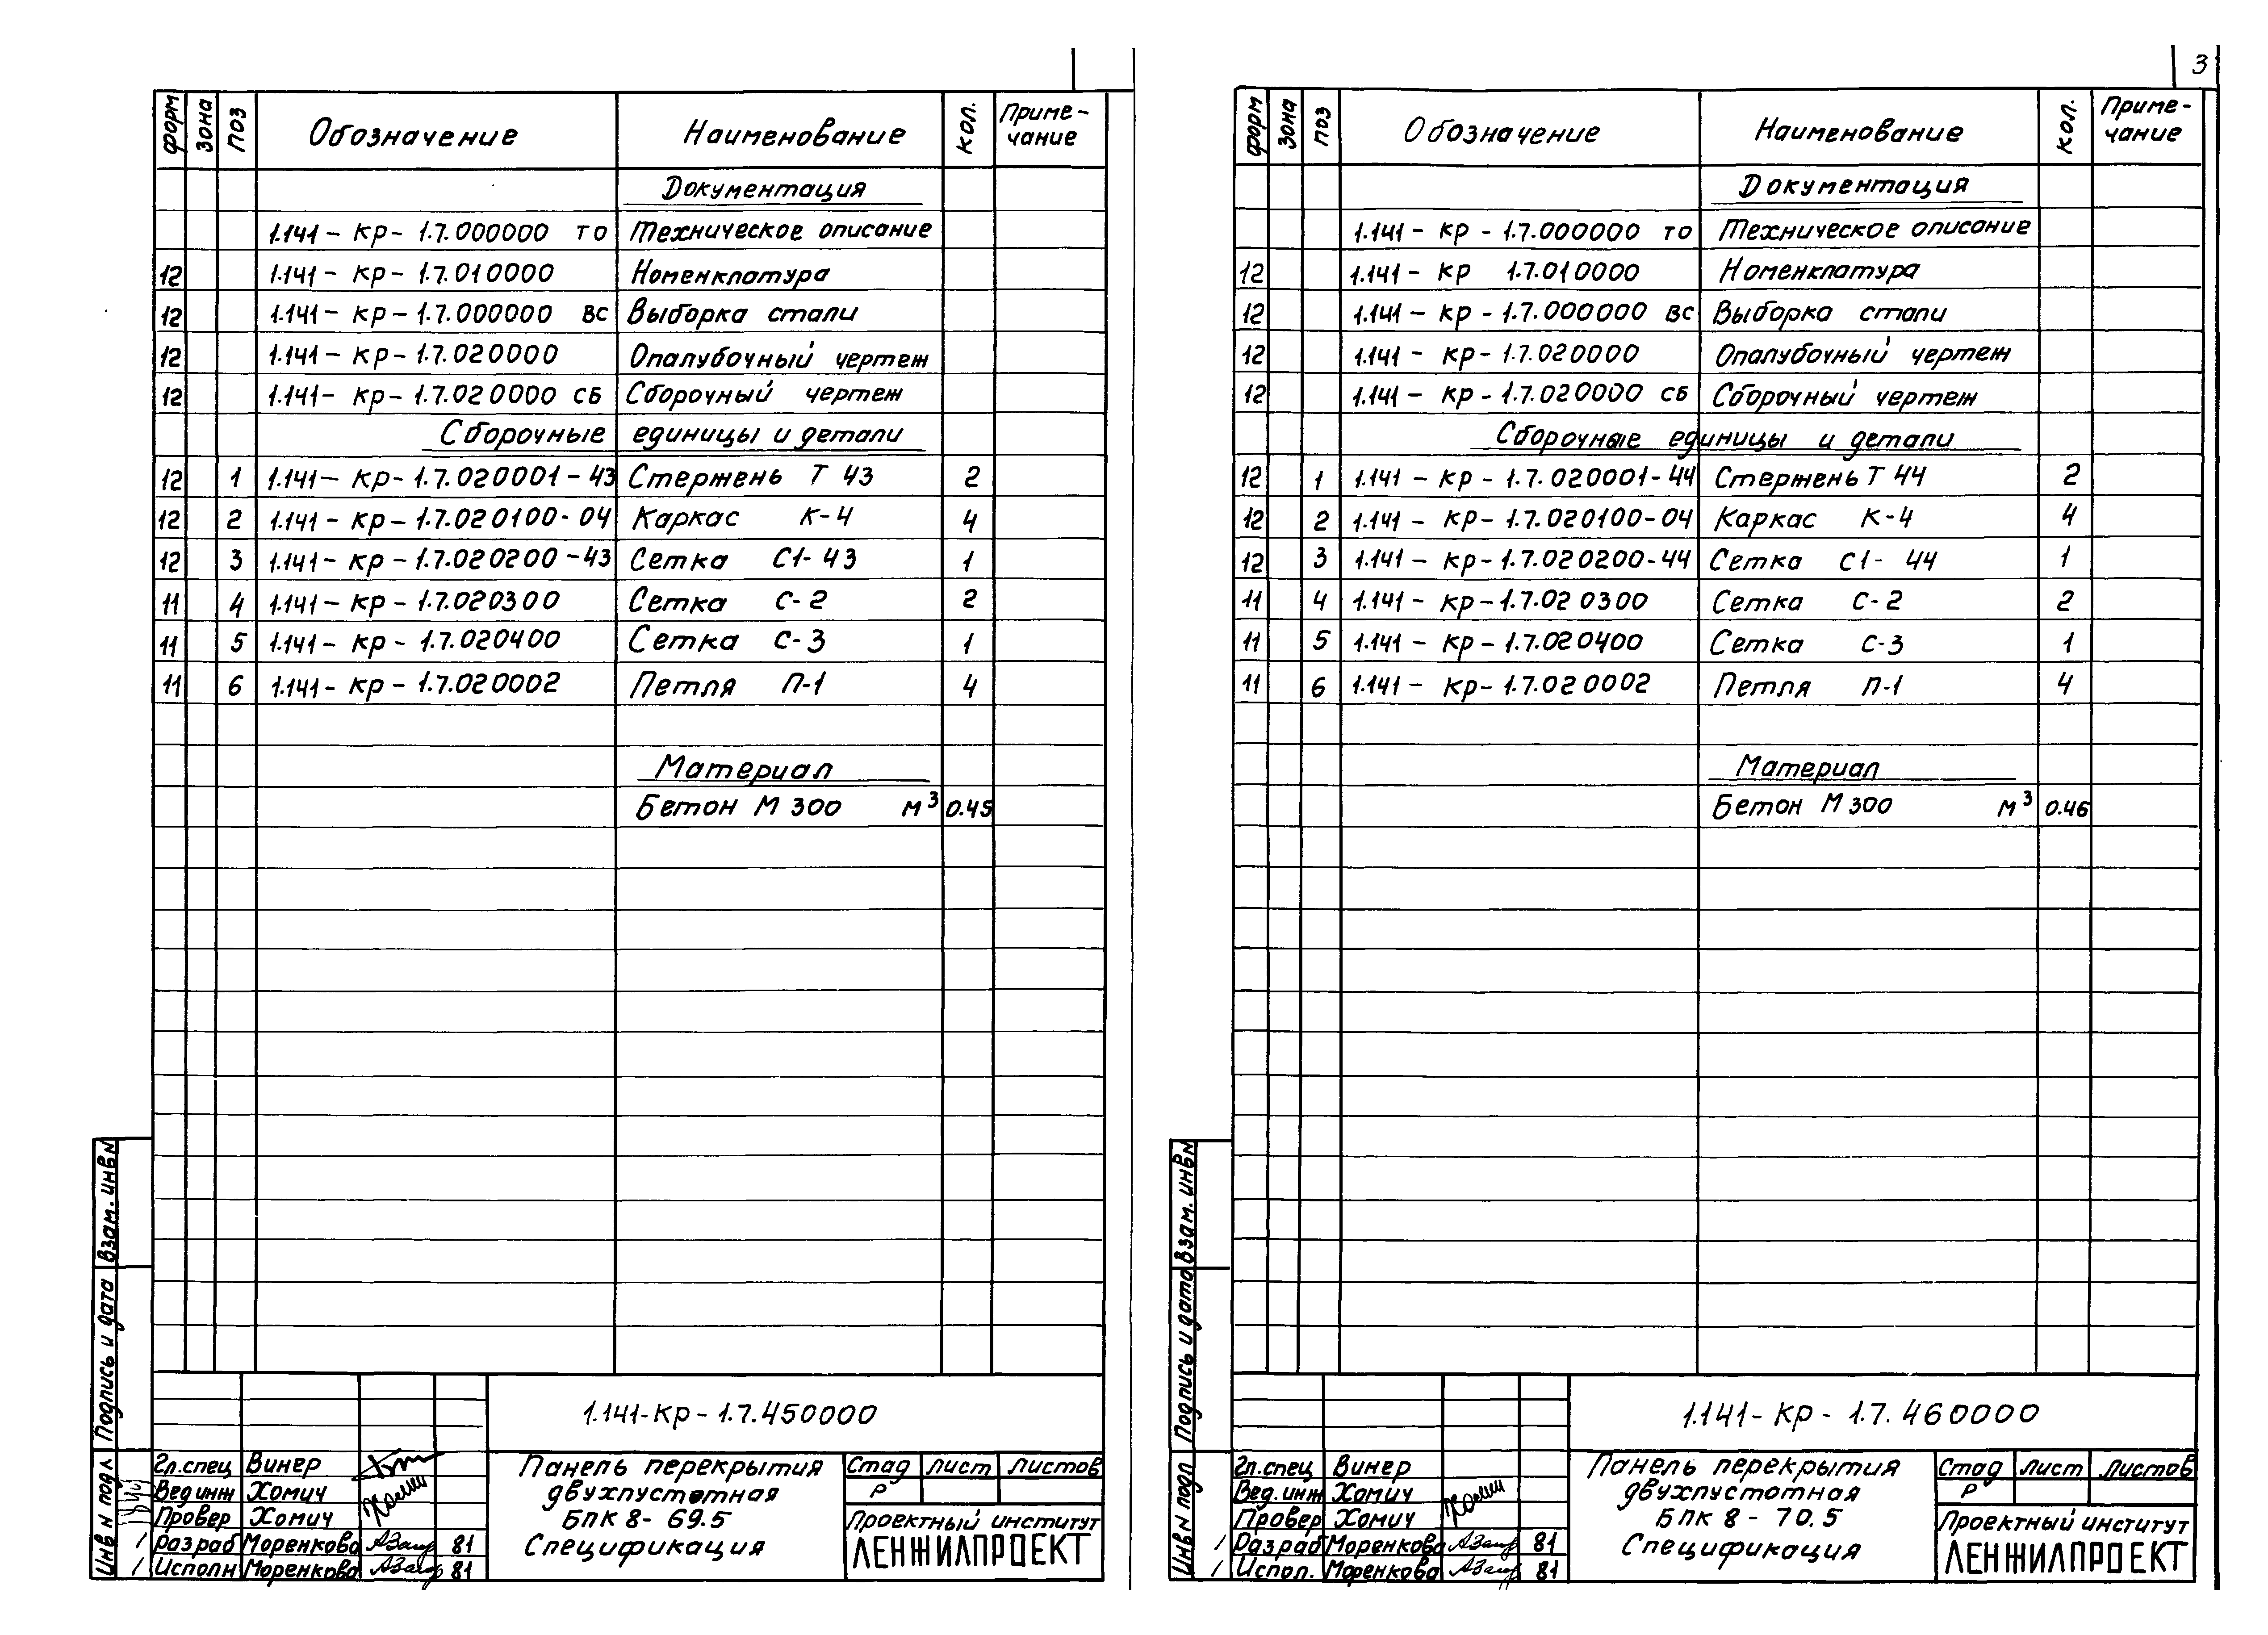 форм зона поз Обозначение Наименование кол. Приме-
чание
Документация
1.141 - кр - 1.7.000000 ТО Техническое описание
12 1.141 - кр - 1.7.010000 Номенклатура
12 1.141 - кр - 1.7.000000 ВС Выборка стали
12 1.141 - кр - 1.7.020000 Опалубочный чертеж
12 1.141 - кр - 1.7.020000 СБ Сборочный чертеж
Сборочные единицы и детали
12 1 1.141 - кр - 1.7.020001 - 43 Стержень Т 43 2
12 2 1.141 - кр - 1.7.020100 - 04 Каркас К-4 4
12 3 1.141 - кр - 1.7.020200 - 43 Сетка С1-43 1
11 4 1.141 - кр - 1.7.020300 Сетка С-2 2
11 5 1.141 - кр - 1.7.020400 Сетка С-3 1
11 6 1.141 - кр - 1.7.020002 Петля П-1 4
Материал
Бетон М 300 м³ 0.45
Взам. инв N
Подпись и дата
Инв N подл
1.141-кр-1.7.450000
Гл.спец Винер
Вед инж Хомич
Провер Хомич
Разраб Моренкова 81
Исполн Моренкова 81
Панель перекрытия
двухпустотная
БПК 8-69.5
Спецификация
Стад Лист Листов
Р
Проектный институт
ЛЕНЖИЛПРОЕКТ
3
форм зона поз Обозначение Наименование кол. Приме-
чание
Документация
1.141 - кр - 1.7.000000 ТО Техническое описание
12 1.141 - кр 1.7.010000 Номенклатура
12 1.141 - кр - 1.7.000000 ВС Выборка стали
12 1.141 - кр - 1.7.020000 Опалубочный чертеж
12 1.141 - кр - 1.7.020000 СБ Сборочный чертеж
Сборочные единицы и детали
12 1 1.141 - кр - 1.7.020001-44 Стержень Т 44 2
12 2 1.141 - кр - 1.7.020100-04 Каркас К-4 4
12 3 1.141 - кр - 1.7.020200-44 Сетка С1-44 1
11 4 1.141 - кр - 1.7.020300 Сетка С-2 2
11 5 1.141 - кр - 1.7.020400 Сетка С-3 1
11 6 1.141 - кр - 1.7.020002 Петля П-1 4
Материал
Бетон М 300 м³ 0.46
Взам. инв N
Подпись и дата
Инв N подл
1.141-кр-1.7.460000
Гл.спец Винер
Вед.инж Хомич
Провер Хомич
Разраб Моренкова 81
Испол. Моренкова 81
Панель перекрытия
двухпустотная
БПК 8-70.5
Спецификация
Стад Лист Листов
Р
Проектный институт
ЛЕНЖИЛПРОЕКТ